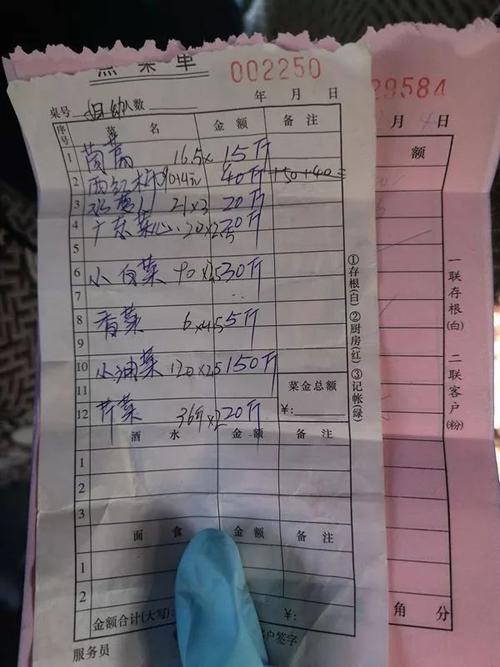 点菜单 002250
29584
桌号 人数 年 月 日
月 4 日
序号 菜名 金额 备注
额
1 茼蒿 16.5x 15斤
2 西红柿 40斤 150+40=
3 21x3 20斤
4 广东菜心 20x2.5 20斤
5
6 小白菜 90x2.5 30斤
7
8 香菜 6x4.5 5斤
9
10 小油菜 120x2.5 150斤
11
12 芹菜 36斤x2 20斤
菜金总额
¥:
①存根(白) ②厨房(红) ③记帐(绿)
一联存根(白) 二联客户(粉)
酒水 金额 备注
1
2
3
面食 金额 备注
1
2
金额合计(大写): ¥:
角 分
服务员 客户签字